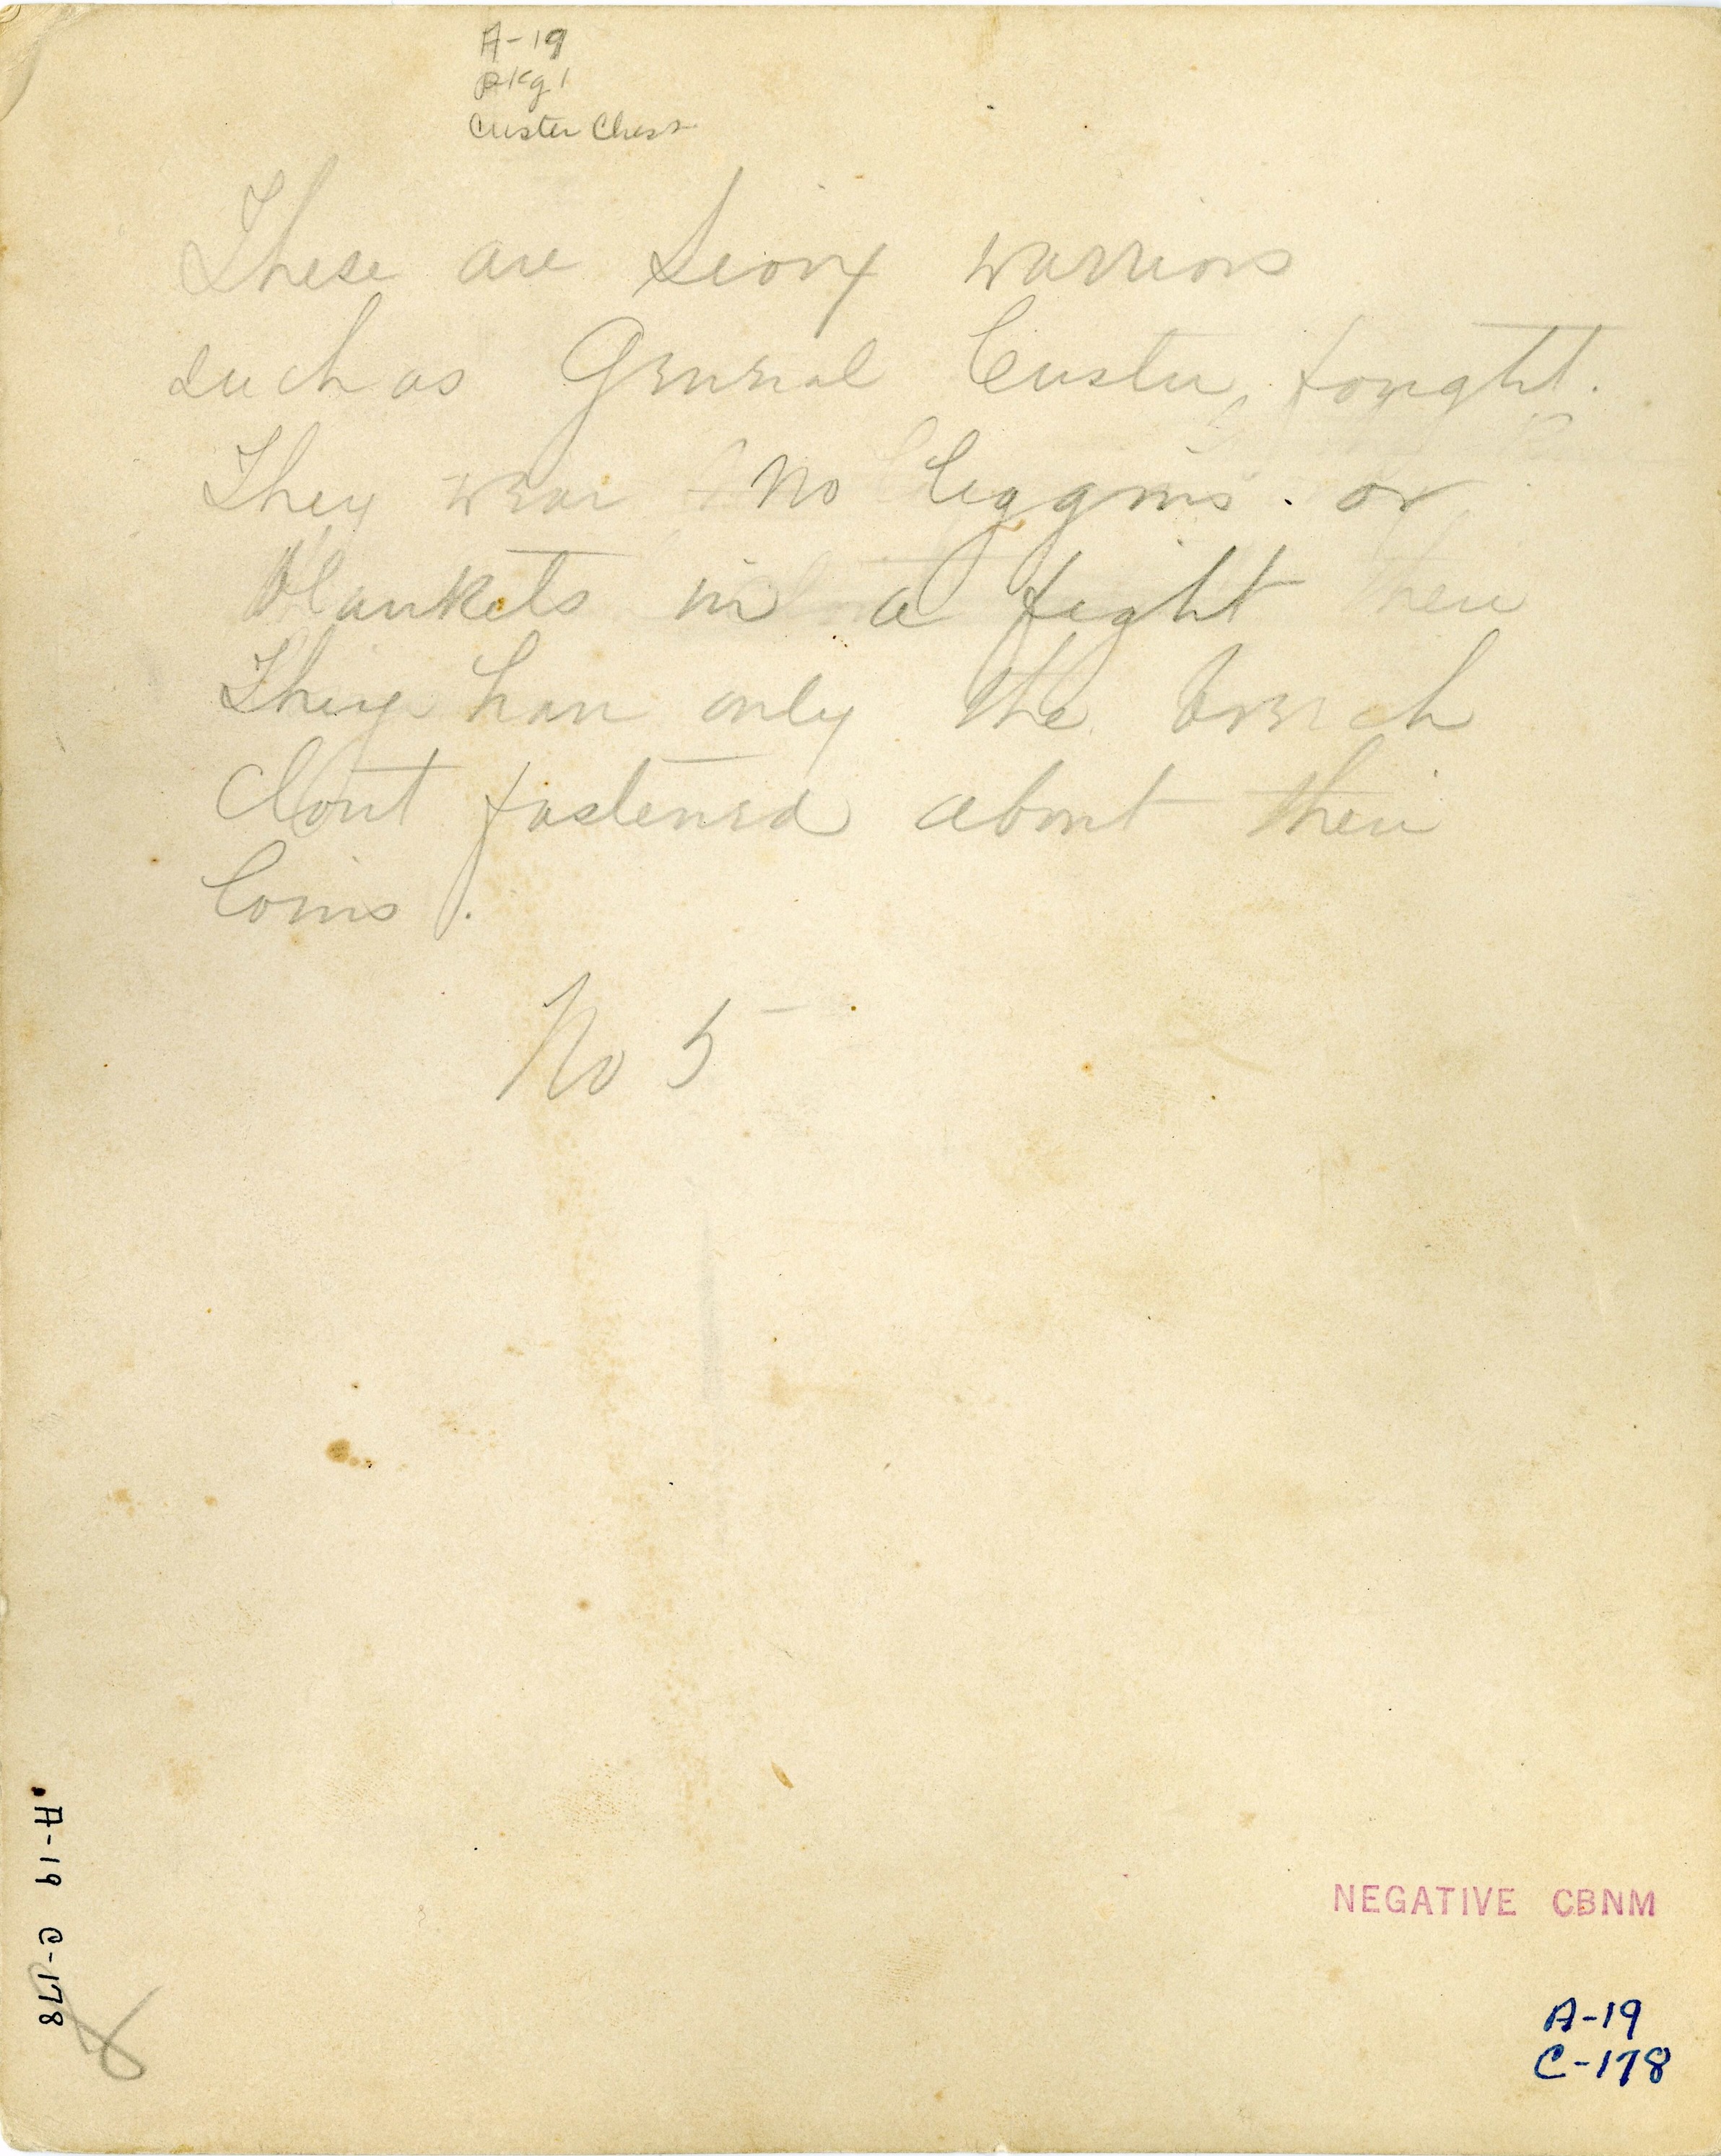 A-19
Pkg 1
Custer Chest
These are Sioux warriors
such as General Custer fought.
They wear no leggins. or
blankets in a fight then
They have only the breech
Clout fastened about their
loins.
No 5
NEGATIVE CBNM
A-19
C-178
A-19 C-178